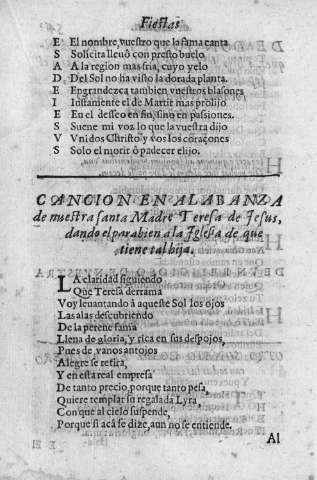 Fiestas
E El nombre, vuestro que la fama canta
S Solicita lleuò con presto buelo
A A la region mas fria, cuyo yelo
D. Del Sol no ha visto la dorada planta.
E Engrandezca tambien vuestros blasones
I Iustamente el de Martir mas prolijo
E En el desseo en fin, sino en passiones.
S Suene mi voz lo que la vuestra dijo
V Vnidos Christo y vos los coraçones
S Solo el morir ò padecer elijo.
CANCION EN ALABANZA
de nuestra santa Madre Teresa de Iesus,
dando el parabien a la Iglesia de que
tiene tal hija.
LA claridad siguiendo
Que Teresa derrama
Voy leuantando â aqueste Sol los ojos
Las alas descubriendo
De la perene fama
Llena de gloria, y rica en sus despojos,
Pues de vanos antojos
Alegre se retira,
Y en esta real empresa
De tanto precio, porque tanto pesa,
Quiere templar su regalada Lyra,
Con que al cielo suspende,
Porque si acâ se dize, aun no se entiende.
Al